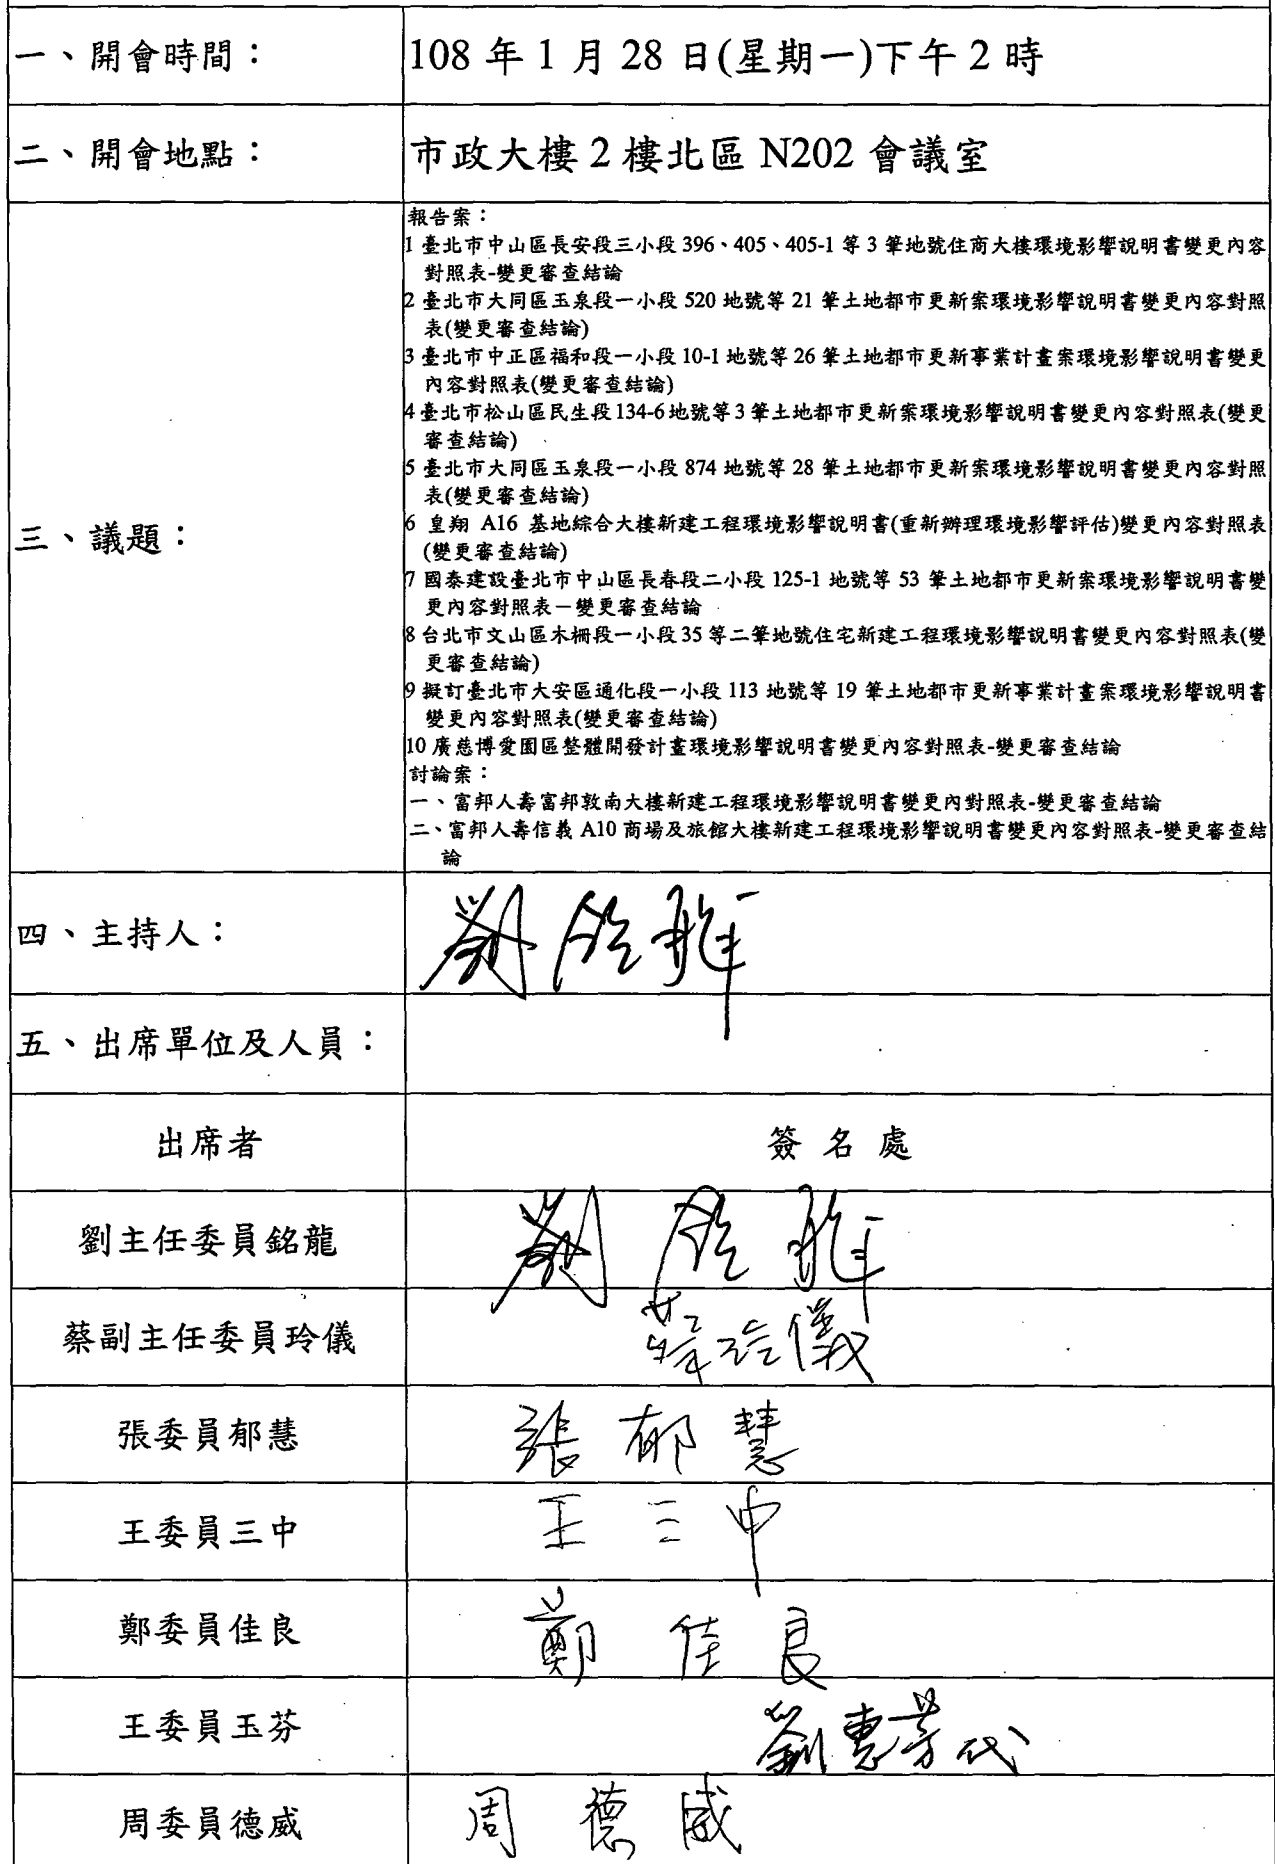 一、開會時間：
108 年 1 月 28 日(星期一)下午 2 時
二、開會地點：
市政大樓 2 樓北區 N202 會議室
三、議題：
報告案：
1 臺北市中山區長安段三小段 396、405、405-1 等 3 筆地號住商大樓環境影響說明書變更內容
對照表-變更審查結論
2 臺北市大同區玉泉段一小段 520 地號等 21 筆土地都市更新案環境影響說明書變更內容對照
表(變更審查結論)
3 臺北市中正區福和段一小段 10-1 地號等 26 筆土地都市更新事業計畫案環境影響說明書變更
內容對照表(變更審查結論)
4 臺北市松山區民生段 134-6 地號等 3 筆土地都市更新案環境影響說明書變更內容對照表(變更
審查結論)
5 臺北市大同區玉泉段一小段 874 地號等 28 筆土地都市更新案環境影響說明書變更內容對照
表(變更審查結論)
6 皇翔 A16 基地綜合大樓新建工程環境影響說明書(重新辦理環境影響評估)變更內容對照表
(變更審查結論)
7 國泰建設臺北市中山區長春段二小段 125-1 地號等 53 筆土地都市更新案環境影響說明書變
更內容對照表－變更審查結論
8 台北市文山區木柵段一小段 35 等二筆地號住宅新建工程環境影響說明書變更內容對照表(變
更審查結論)
9 擬訂臺北市大安區通化段一小段 113 地號等 19 筆土地都市更新事業計畫案環境影響說明書
變更內容對照表(變更審查結論)
10 廣慈博愛園區整體開發計畫環境影響說明書變更內容對照表-變更審查結論
討論案：
一、富邦人壽富邦敦南大樓新建工程環境影響說明書變更內對照表-變更審查結論
二、富邦人壽信義 A10 商場及旅館大樓新建工程環境影響說明書變更內容對照表-變更審查結
論
四、主持人：
劉銘龍
五、出席單位及人員：
出席者
簽名處
劉主任委員銘龍
劉銘龍
蔡副主任委員玲儀
蔡玲儀
張委員郁慧
張郁慧
王委員三中
王三中
鄭委員佳良
鄭佳良
王委員玉芬
劉惠芳代
周委員德威
周德威